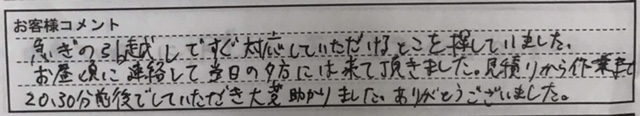 お客様コメント
急ぎの引越しですぐ対応していただけるところを探していました。
お昼頃に連絡して当日の夕方には来て頂きました。見積りから作業まで
20、30分前後でしていただき大変助かりました。ありがとうございました。